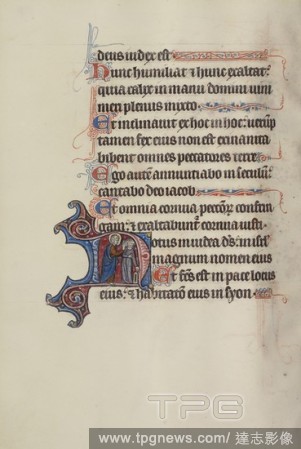 deus iudex est
Hunc humiliat et hunc exaltat:
quia calix in manu domini uini
meri plenus mixto.
Et inclinauit ex hoc in hoc: uerūp
tamen fex eius non est exinanita
bibent omnes peccatores terre.
Ego autem annuntiabo in seculum:
cantabo deo iacob.
Et omnia cornua peccatorꝝ confrin
gam: et exaltabuntʳ cornua iusti.
Notus in iudea ds̄: in isrl̄
magnum nomen eius
Et fc̄s est in pace locus
eius: et habitatio eius in syon.
TPG
www.tpgnews.com/ 達志影像